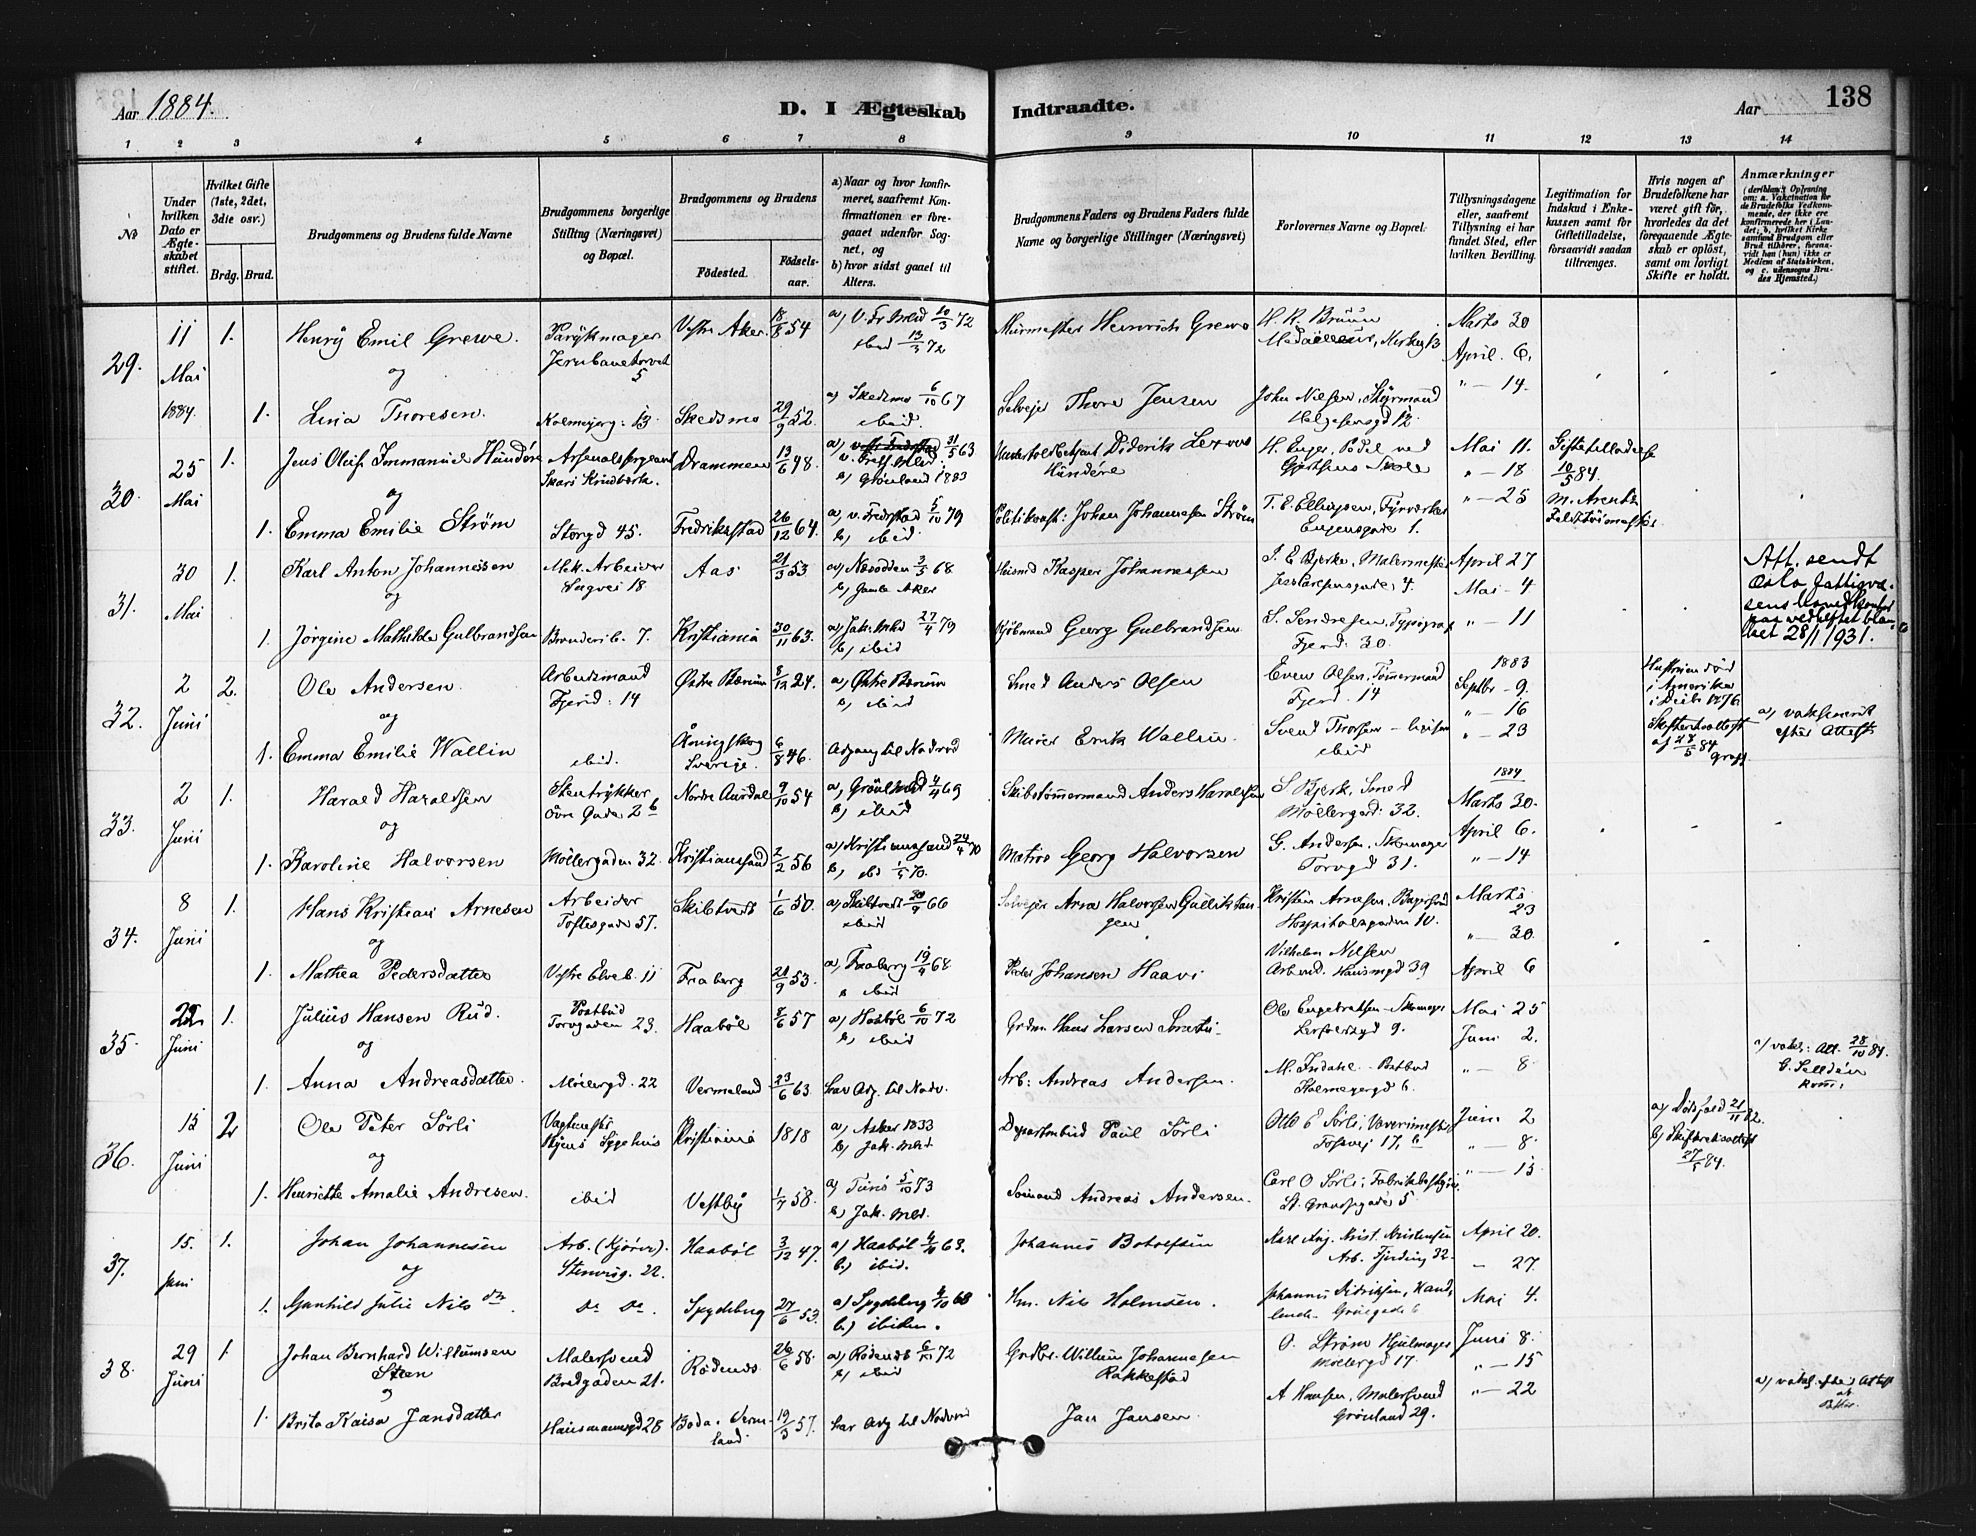 Aar 1884.
D. I Ægteskab Indtraadte.
Aar
138
1 2 3 4 5 6 7 8 9 10 11 12 13 14
No
Under hvilken Dato er Ægteskabet stiftet.
Hvilket Gifte (1ste, 2det, 3die osv.)
Brdg. Brud.
Brudgommens og Brudens fulde Navne
Brudgommens borgerlige Stilling (Næringsvei) og Bopæl.
Brudgommens og Brudens
Födested.
Födselsaar.
a) Naar og hvor konfirmeret, saafremt Konfirmationen er foregaaet udenfor Sognet, og
b) hvor sidst gaaet til Alters.
Brudgommens Faders og Brudens Faders fulde Navne og borgerlige Stillinger (Næringsvei)
Forlovernes Navne og Bopæl.
Tillysningsdagene eller, saafremt Tillysning ei har fundet Sted, efter hvilken Bevilling.
Legitimation for Indskud i Enkekassen samt for Giftetilladelse, forsaavidt saadan tiltrænges.
Hvis nogen af Brudefolkene har været gift för, hvorledes da det foregaaende Ægteskab er oplöst, samt om lovligt Skifte er holdt.
Anmærkninger
(deriblandt Oplysning om: a. Vakcination for de Brudefolks Vedkommende, der ikke ere konfirmerede her i Landet; b. hvilket Kirkesamfund Brudgom eller Brud tilhörer, forsaavidt han (hun) ikke er Medlem af Statskirken, og c. udensogns Brudes Hjemsted.)
29. 11 Mai 1884. 1. Henrÿ Emil Grewe. Parÿkmager Jernbanetorvet 5 Vestre Aker 18/8 54 a) V. Fr. Meld 10/3 72 ibid 13/3 72 Murmester Heinrich Grewe H. R. Bruun Medailleur, Kirkeg 13 Marts 30 April 6.
og
1. Lina Thoresen. Holmeyerg: 13 Skedsmo 29/9 52. a) Skedsmo 6/10 67 ibid. Selveier Thore Jensen John Nielsen, Styrmand Helgesensgd 12 " — 14.
30. 25 Mai 1. Jens Oluf Immanuel Hündere Arsenalsergeant Drammen 13/6 48. 31/5 63 b) Grönland 1883 Diderik Hündere H. Enger, Pedel ved Gjertsens Skole Mai 11. " — 18 Giftetilladelse 10/5 84.
og
1. Emma Emilie Ström Storgd 45. Fredrikstad 26/12 64. a) v. Fredrstad 5/10 79 b) ibid. Politikonst: Johan Johannesen Ström T. E. Ellingsen, Fyrverker Eugensgade 1. " — 25 M. Arentz Felttöimester
31. 30 Mai 1. Karl Anton Johannessen Mek. Arbeider Vegvei 18 Aas 21/3 53 a) Næsodden 3/5 68 b) Gamle Aker Huismd Kasper Johannessen J. E. Bjerke, Malermester Jess Carlsensgade 4. April 27 Mai - 4 Att. sendt Oslo fattigvæsens hovedkontor paa vedheftet blanket 28/1 1931.
og
1. Jörgine Mathilde Gulbrandsen Brenderib. 7. Kristiania 30/11 63. a) Jak. Mkd 27/4 79 b) ibid Kjöbmand Georg Gulbrandsen S. Sendresen, Typograf Fjerd: 30. " — 11
32. 2 Juni 2. Ole Andersen. Arbeidsmand Fjerd: 14 Østre Bærum 8/12 24. a) Østre Bærum b) ibid Smed Anders Olsen Even Olsen, Tömmermand Fjerd. 14 1883 Septbr - 9. " — 16 Hustruen död i Amerika i Decbr 1876 Skifteretsattest af 28/5 84
og
1. Emma Emilie Wallin ibid. Sverige. 6/8 46. Adgang til Nadverd Murer Erik Wallin Svend Thorsen ibid " — 23 a) vaksineret efter Attest
33. 2 Juni 1. Harald Haraldsen Stentrykker Övre Gade 26 Nordre Aurdal 9/10 54 a) Grönland 4/4 69 b) ibid Skibstömmermand Anders Haraldsen S. Bjerk, Smed Möllergad: 32. 1884 Marts 30. April 6.
og
1. Karoline Halvorsen Möllergaden 32. Kristianssand 2/2 56 a) Kristianssand 24/4 70 b) ibid 1/5 70. Matros Georg Halvorsen G. Andersen, Skomager Torvgd 31. " — 14
34. 8 Juni 1. Hans Kristian Arnesen Arbeider Toftesgade 57. Skibtvedt 1/6 50. a) Skibtvedt 30/9 66 ibid Selveier Arne Halvorsen Gulliksrangen Kristian Arnesen, Bagersvend Hospitalsgaden 10. Marts 23 " — 30.
og
1. Mathea Pedersdatter Vestre Elveb. 11 Faaberg 21/9 53. a) Faaberg 19/4 68 b ibid Peder Johansen Haavi Vilhelm Nilsen Arbmd. Hausmgd 39 April 6
35. 22 Juni 1. Julius Hansen Rud. Postbud Torvgaden 23. Haaböl 8/6 57 a) Haaböl 6/10 72 b) ibid Grdmn Hans Larsen Ole Engebretsen - Skomager 9. Mai 25 Juni 2.
og
1. Anna Andreasdatter. Möllergd. 22 Vermeland 23/6 63. har Adg. til Nadv. Arb: Andreas Andersen. M. Indahl - Postbud Holmeyergd 6. " — 8 a) vaks: Att. 28/10 84.
36. 15 Juni 2 Ole Peter Sörli Vagtmester Kristiania 1818 a) Asker 1833 b) Jak. Mkd. Departmbud Paul Sörli Otto E Sörli, Værvemester Tosvej 17, b Juni 2 " — 8. a) Dödsfald 21/11 82. b) Skifteretsattest 27/5 84.
og
1. Henriette Amalie Andresen. ibid Vestby 1/7 58. a) Tunö 5/10 73 b) Jak. Mkd. Sömand Andreas Andersen. Carl O Sörli, Fabrikbestyrer. St. Grandsgade 5 " — 15
37. 15. Juni 1. Johan Johannesen Arb. (Kjörer.) Stenersg. 22. Haaböl 3/12 47. a) Haaböl 4/10 63. b.) ibid. Johannes Botolfsen Karl Aug. Krist. Kristensen Arb. Fjerding 32. April 20. " 27
og
1. Gunhild Julie Nilsdtr. do do. Spydeberg 27/6 53. a) Spydeberg 4/10 68 b.) ibidem. Hm. Nils Holmsen. Johannes Didriksen, Handlende. Grönegade 6 Mai 4.
38. 29 Juni 1. Johan Bernhard Willumsen Steen Malersvend Bredgaden 21. Rödenes 26/6 58. a) Rödenes 6/10 72 b) ibid Grdbr. Willum Johannesen Rakkestad O. Ström Hjulmager Möllergd 17. Juni 8. " — 15
og
1. Brita Kaisa Jansdatter Hausmannsgd 28 Boda. Vermland 19/3 57. har Adg til Nadverd Jan Jansen. A Hansen, Malersvend Grönland 29. " — 22 a) vaks. efter Attest